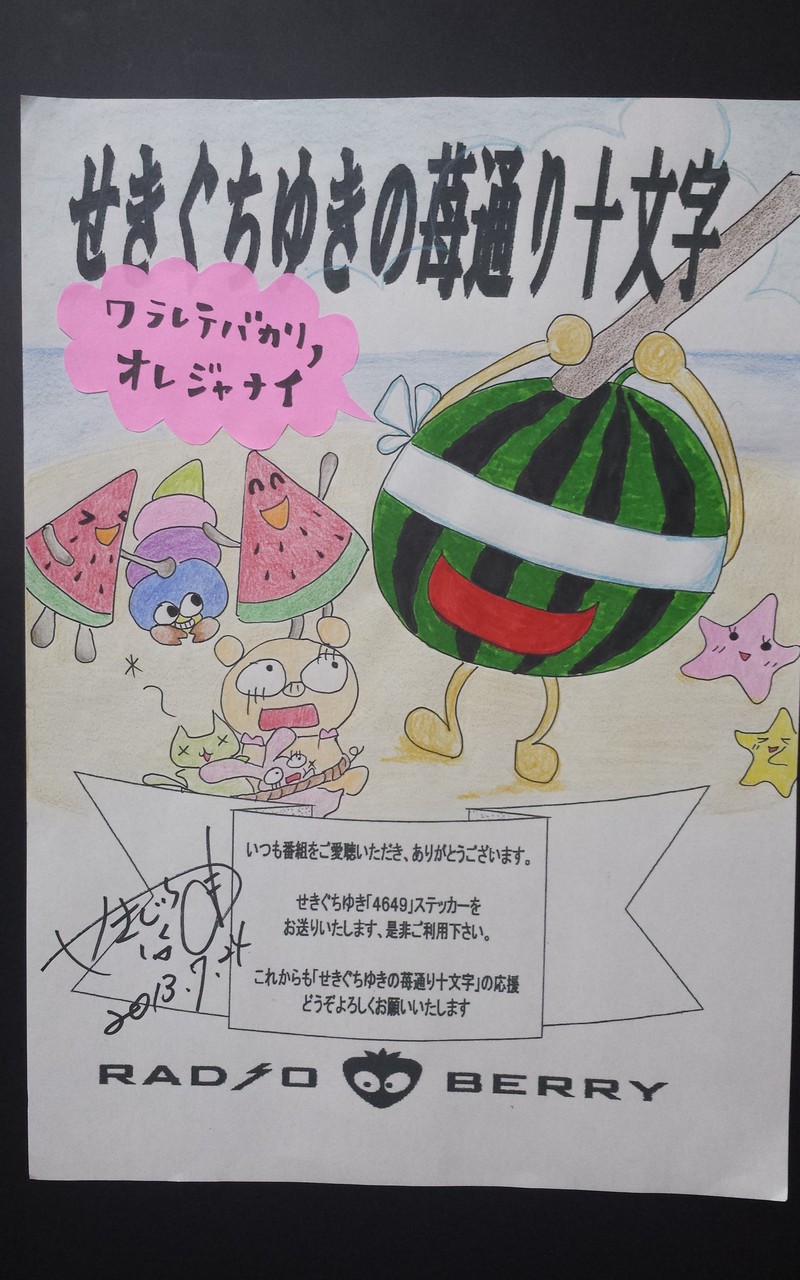 せきぐちゆきの苺通り十文字
ワラレテバカリ,
オレジャナイ
いつも番組をご愛聴いただき、ありがとうございます。
せきぐちゆき「4649」ステッカーを
お送りいたします、是非ご利用下さい。
これからも「せきぐちゆきの苺通り十文字」の応援
どうぞよろしくお願いいたします
2013.7.24
RADIO BERRY